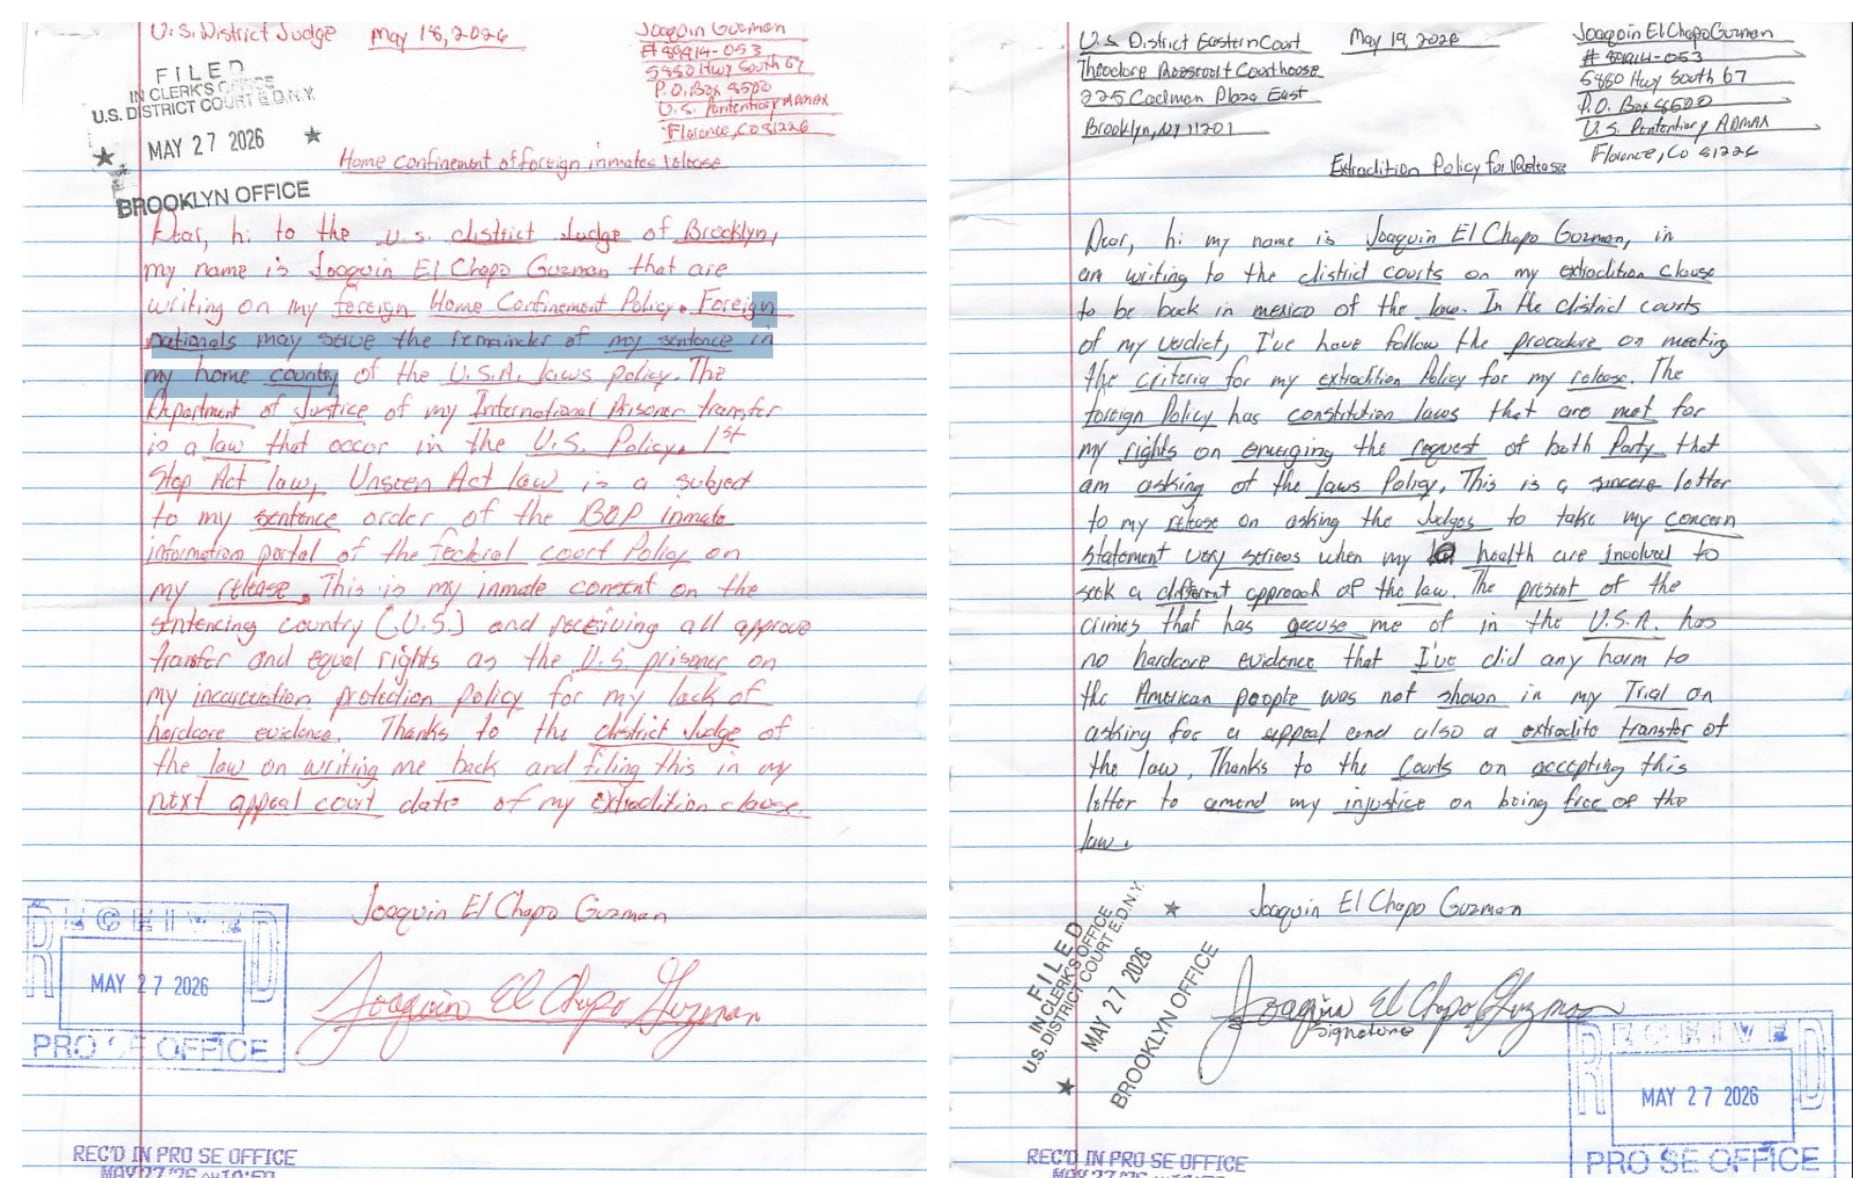 U.S. District Judge May 18, 2026
Joaquin Guzman
# 89914-053
5880 Hwy South 67
P.O. Box 8500
U.S. Pententiary ADMAX
Florence, CO 81226
FILED
IN CLERK'S OFFICE
U.S. DISTRICT COURT E.D.N.Y.
★ MAY 27 2026 ★
BROOKLYN OFFICE
Home confinement of foreign inmates release
Dear, hi to the U.S. district Judge of Brooklyn,
my name is Joaquin El Chapo Guzman that are
writing on my foreign Home Confinement Policy. Foreign
nationals may serve the remainder of my sentence in
my home country of the U.S.A. laws policy. The
Department of Justice of my International Prisoner transfer
is a law that occur in the U.S. Policy. 1st
Stop Act law, Unseen Act law is a subject
to my sentence order of the BOP inmate
information portal of the federal court Policy on
my release. This is my inmate consent on the
sentencing country (U.S.) and receiving all approve
transfer and equal rights as the U.S prisoner on
my incarceration protection policy for my lack of
hardcore evidence. Thanks to the district Judge of
the law on writing me back and filing this in my
next appeal court date of my extradition clause.
Joaquin El Chapo Guzman
Joaquin El Chapo Guzman
RECEIVED
MAY 27 2026
PRO SE OFFICE
REC'D IN PRO SE OFFICE
MAY 27 '26
U.S. District Eastern Court May 19, 2026
Theodore Roosevolt Courthouse
225 Cadman Plaza East
Brooklyn, NY 11201
Joaquin El Chapo Guzman
# 89914-053
5880 Hwy South 67
P.O. Box 8500
U.S. Pentентiary ADMAX
Florence, Co 81226
Extradition Policy for Release
Dear, hi my name is Joaquin El Chapo Guzman, in
am writing to the district courts on my extradition clause
to be back in mexico of the law. In the district courts
of my verdict, I've have follow the procedure on meeting
the criteria for my extradition Policy for my release. The
foreign Policy has constitution laws that are met for
my rights on emerging the request of both Party that
am asking of the laws Policy. This is a sincere letter
to my release on asking the Judges to take my concern
statement very serious when my health are involved to
seek a different approach of the law. The present of the
crimes that has accuse me of in the U.S.A. has
no hardcore evidence that I've did any harm to
the American people was not shown in my Trial on
asking for a appeal and also a extradite transfer of
the law. Thanks to the Courts on accepting this
letter to amend my injustice on being free of the
law.
Joaquin El Chapo Guzman
Joaquin El Chapo Guzman
Signature
FILED
IN CLERK'S OFFICE
U.S. DISTRICT COURT E.D.N.Y.
★ MAY 27 2026 ★
BROOKLYN OFFICE
RECEIVED
MAY 27 2026
PRO SE OFFICE
REC'D IN PRO SE OFFICE